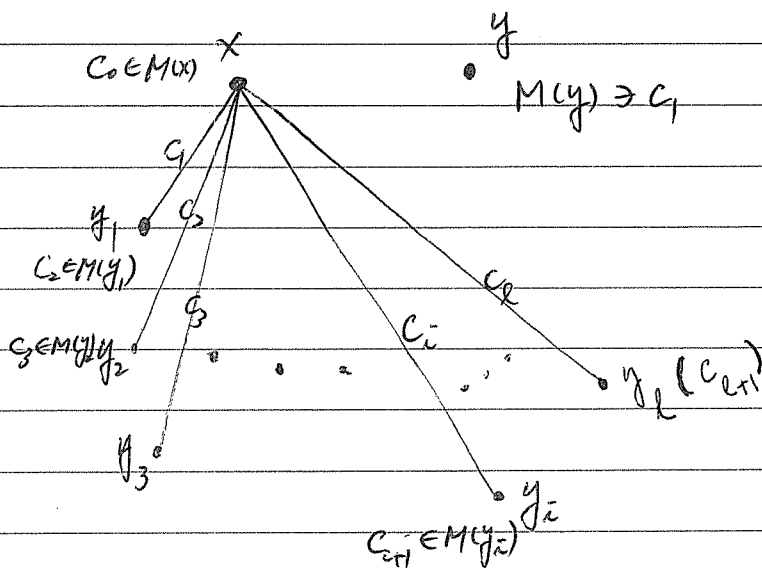 x
y
C₀ ∈ M(x)
M(y) ∋ C₁
C₁
y₁
C₂
C₂ ∈ M(y₁)
C₃
C₃ ∈ M(y₂) y₂
C_i
C_l
y_l (C_{l+1})
y₃
y_i
C_{i+1} ∈ M(y_i)